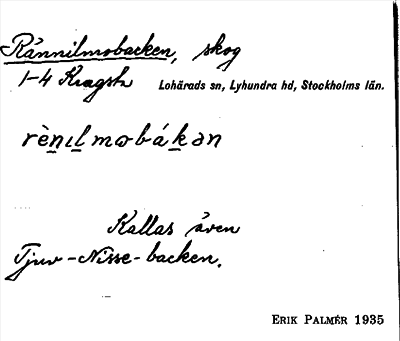 Rännilmobacken, skog
1-4 Kragsta Lohärads sn, Lyhundra hd, Stockholms län.
rènılmobákən
Kallas även
Tjuv-Nisse-backen.
ERIK PALMÉR 1935